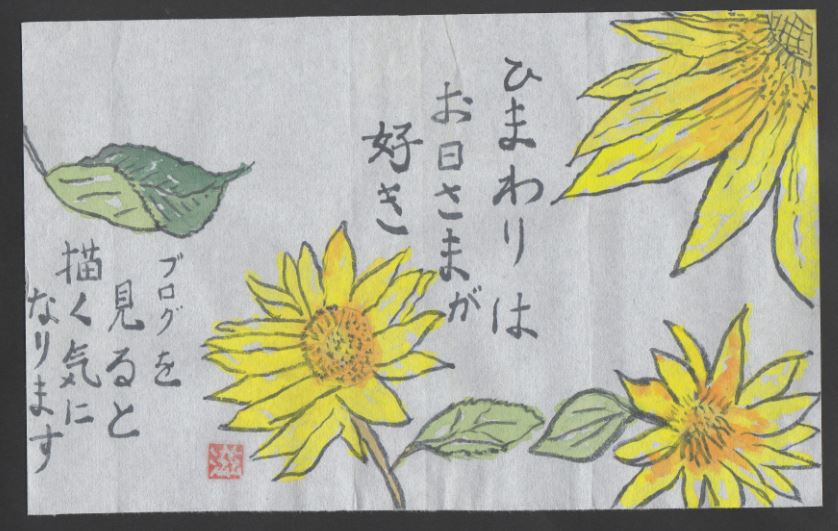 ひまわりは
お日さまが
好き
ブログを
見ると
描く気に
なります